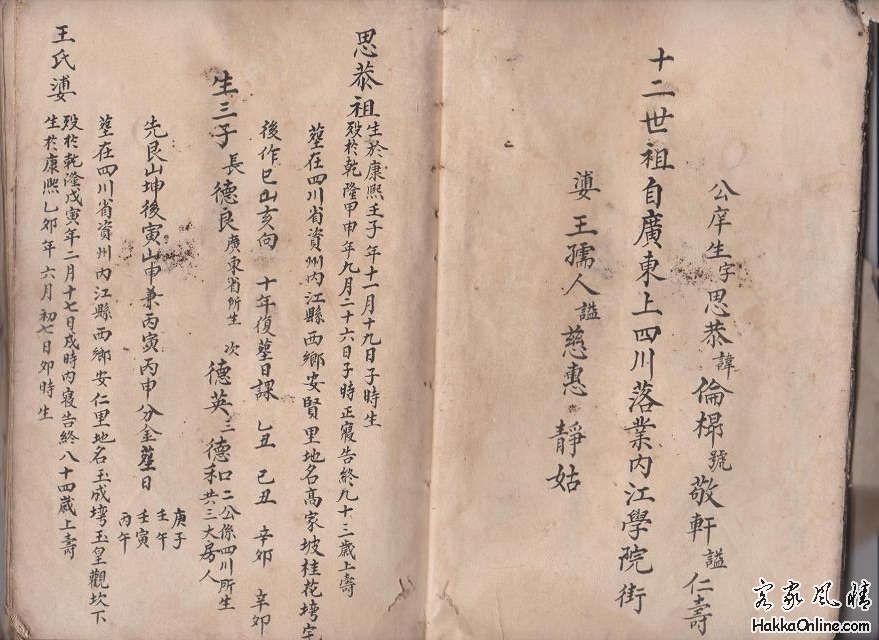 公庠生字思恭諱倫號敬軒謚仁壽
十二世祖自廣東上四川落業內江學院街
婆王孺人謚慈惠靜姑
思恭祖生於康熙壬子年十一月十九日子時生
歿於乾隆甲申年九月二十六日子時正寢告終九十三歲上壽
塟在四川省資州內江縣西鄉安賢里地名高家坡桂花塆宅
後作巳山亥向 十年復塟日課 乙丑 己丑 辛卯 辛卯
生三子 長德良廣東省所生 次德英三德和口二公係四川所生共三大房人
先艮山坤後寅山申兼丙寅丙申分金塟日 庚子 壬午 壬寅 丙午
塟在四川省資州內江縣西鄉安仁里地名玉成塆玉皇觀坎下
王氏婆
歿於乾隆戊寅年二月十七日戌時內寢告終八十四歲上壽
生於康熙乙卯年六月初七日卯時生
客家風情
HakkaOnline.com